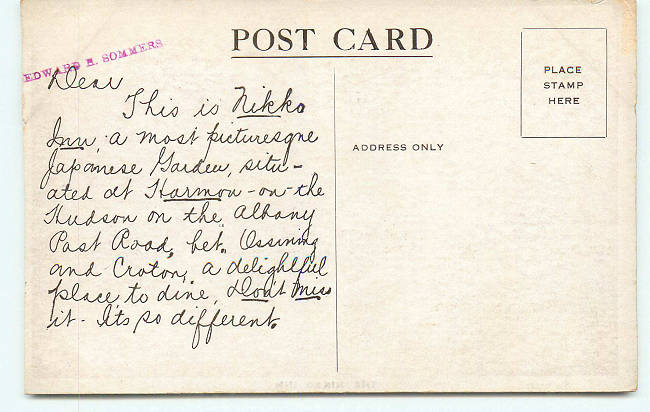 POST CARD
EDWARD H. SOMMERS
PLACE
STAMP
HERE
ADDRESS ONLY
Dear
This is Nikko
Inn, a most picturesque
Japanese Garden, situ-
ated at Harmon-on-the
Hudson on the Albany
Post Road, bet. Ossining
and Croton, a delightful
place to dine, Don't miss
it - It's so different.